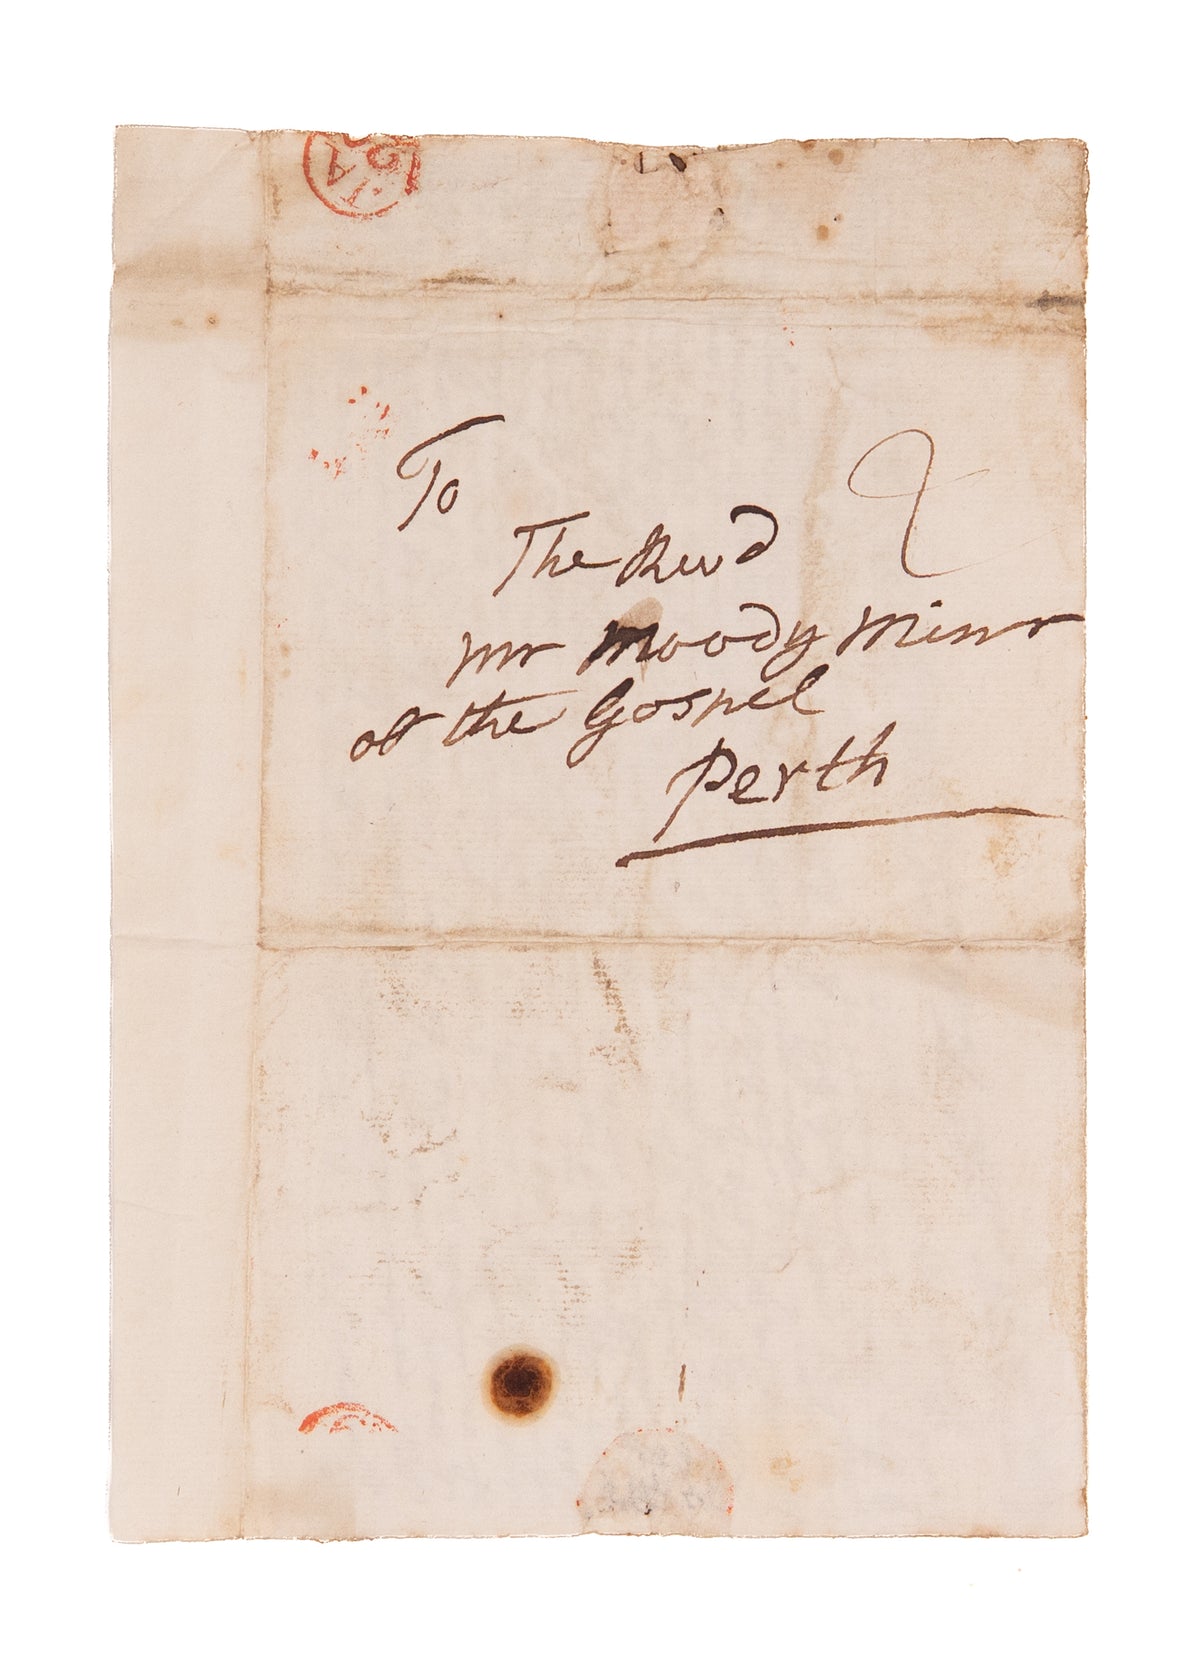 To
The Revd
mr Moody Minr
of the Gospel
Perth